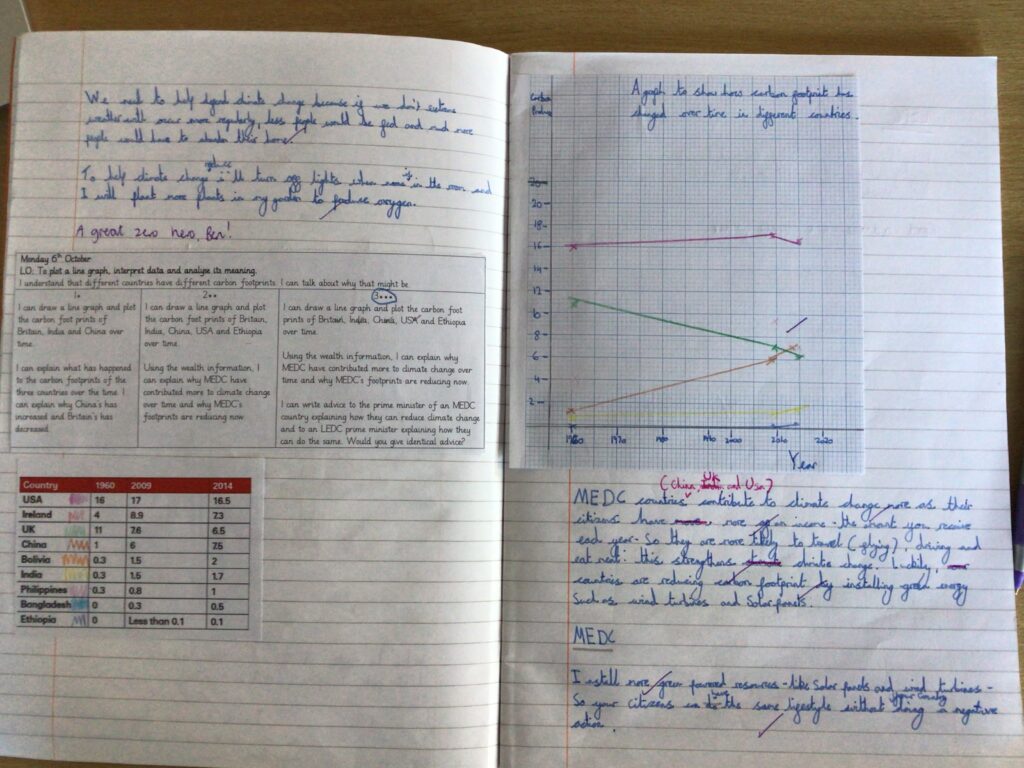 We need to help against climate change because if we don't extreme
weather will occur more regularly, less people would be fed and much more
people will have to abandon their home.
reduce
To help climate change i'll turn off lights when none is in the room and
I will plant more plants in my garden to produce oxygen.
A great zero hero, Ben!
Monday 6th October
L.O. To plot a line graph, interpret data and analyse its meaning.
I understand that different countries have different carbon footprints. I can talk about why that might be.
1*
I can draw a line graph and plot
the carbon foot prints of
Britain, India and China over
time.
I can explain what has happened
to the carbon footprints of the
three countries over the time. I
can explain why China's has
increased and Britain's has
decreased.
2**
I can draw a line graph and plot
the carbon foot prints of Britain,
India, China, USA and Ethiopia
over time.
Using the wealth information, I can
explain why MEDC have
contributed more to climate change
over time and why MEDC's
footprints are reducing now.
3***
I can draw a line graph and plot the carbon foot
prints of Britain, India, China, USA and Ethiopia
over time.
Using the wealth information, I can explain why
MEDC have contributed more to climate change over
time and why MEDC's footprints are reducing now.
I can write advice to the prime minister of an MEDC
country explaining how they can reduce climate change
and to an LEDC prime minister explaining how they
can do the same. Would you give identical advice?
Country 1960 2009 2014
USA 16 17 16.5
Ireland 4 8.9 7.3
UK 11 7.6 6.5
China 1 6 7.5
Bolivia 0.3 1.5 2
India 0.3 1.5 1.7
Philippines 0.3 0.8 1
Bangladesh 0 0.3 0.5
Ethiopia 0 Less than 0.1 0.1
A graph to show how carbon footprint has
changed over time in different countries.
Carbon
20
18
16
14
12
10
8
6
4
2
1960 1970 1980 1990 2000 2010 2020
Year
UK
(China, and Usa)
MEDC countries contribute to climate change more as their
citizens have more of an income - the amount you receive
each year. So they are more likely to travel (flying), driving and
eat meat: this strengthens climate change. Luckily,
countries are reducing carbon footprint by installing green energy
such as wind turbines and solar panels.
MEDC
Install more green powered resources - like solar panels and wind turbines -
your country
So your citizens can the same lifestyle without doing a negative
action.